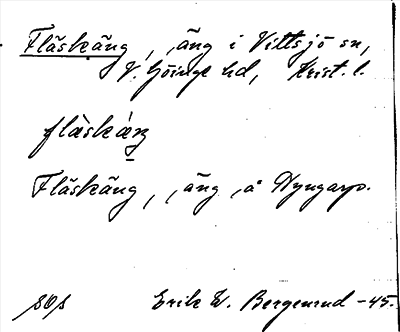 Fläskäng, äng i Vittsjö sn,
V. Göinge hd, Krist. l.
flàskáŋ
Fläskäng, äng, å Nyngarp.
Erik W. Bergenrud -45.